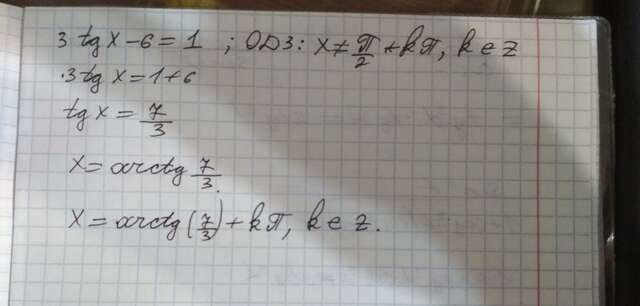 3 tg x - 6 = 1 ; ОДЗ: x ≠ π/2 + kπ, k ∈ z
3 tg x = 1 + 6
tg x = 7/3
x = arctg 7/3
x = arctg (7/3) + kπ, k ∈ z.